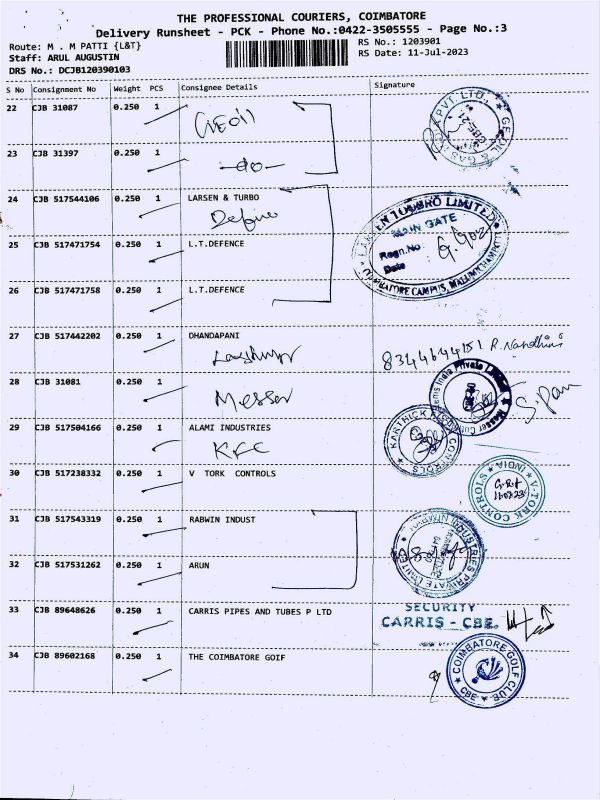 THE PROFESSIONAL COURIERS, COIMBATORE
Delivery Runsheet - PCK - Phone No.:0422-3505555 - Page No.:3
Route: M . M PATTI {L&T}
RS No.: 1203901
Staff: ARUL AUGUSTIN
RS Date: 11-Jul-2023
DRS No.: DCJB120390103
S No Consignment No Weight PCS Consignee Details Signature
22 CJB 31087 0.250 1
23 CJB 31397 0.250 1 -do-
24 CJB 517544106 0.250 1 LARSEN & TURBO
Defence
LARSEN TOUBRO LIMITED
MAIN GATE
Regn.No
Date
COIMBATORE CAMPUS,
25 CJB 517471754 0.250 1 L.T.DEFENCE
26 CJB 517471758 0.250 1 L.T.DEFENCE
27 CJB 517442202 0.250 1 DHANDAPANI
8344644151 R.Nandhini
28 CJB 31081 0.250 1
Messer
29 CJB 517504166 0.250 1 ALAMI INDUSTRIES
KFC
CONTROLS
30 CJB 517238332 0.250 1 V TORK CONTROLS
V-TORK CONTROLS INDIA
31 CJB 517543319 0.250 1 RABWIN INDUST
RABWIN INDUSTRIES PRIVATE LIMITED
32 CJB 517531262 0.250 1 ARUN
33 CJB 89648626 0.250 1 CARRIS PIPES AND TUBES P LTD
SECURITY
CARRIS - CBE.
34 CJB 89602168 0.250 1 THE COIMBATORE GOIF
COIMBATORE GOLF CLUB
CBE